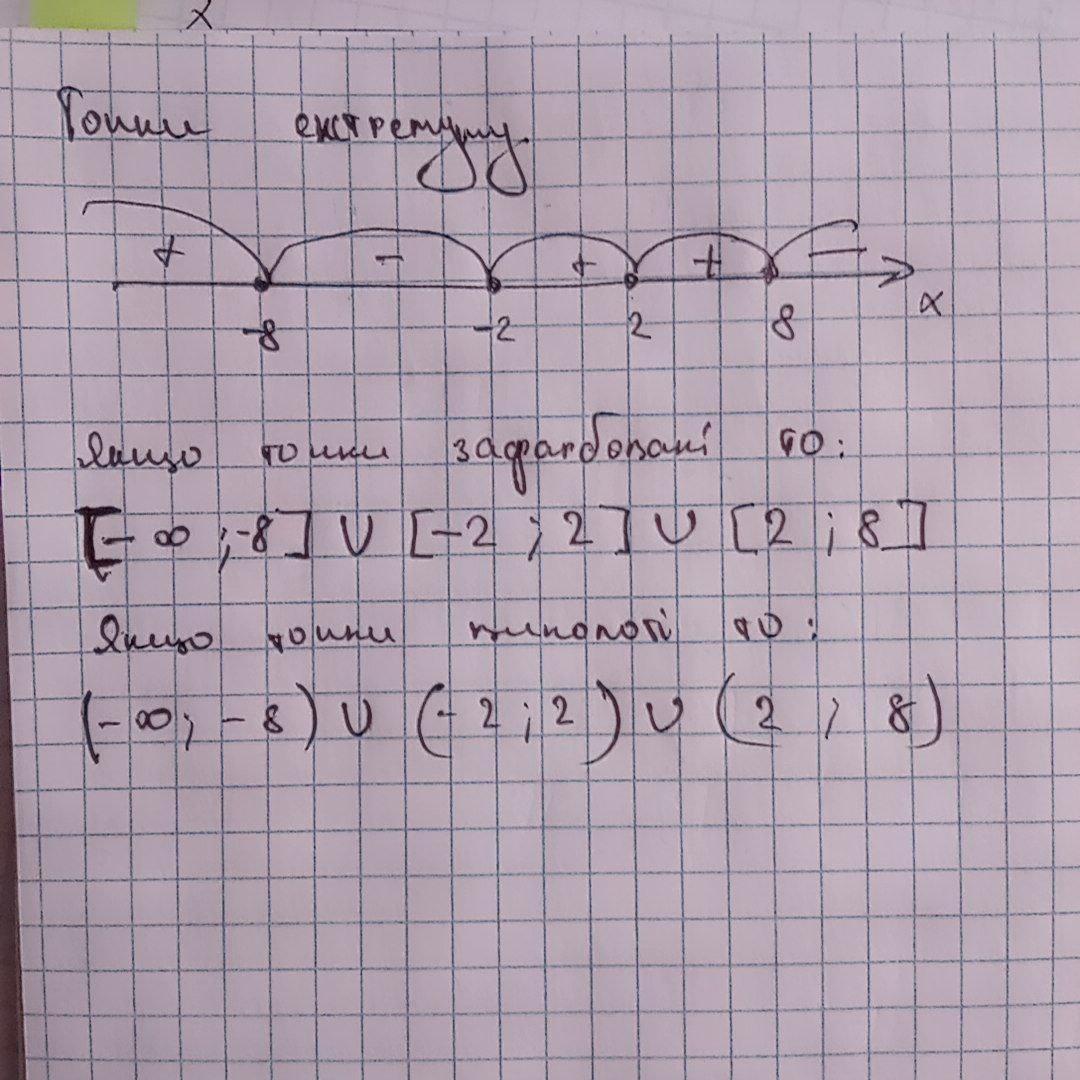 x
Точки екстремуму
+ - + + -
-8 -2 2 8 x
Якщо точки зафарбовані то:
[-∞ ;-8] ∪ [-2 ; 2] ∪ [2 ; 8]
Якщо точки то:
(-∞; -8) ∪ (-2 ; 2) ∪ (2 ; 8)